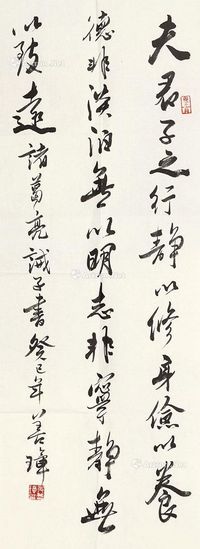 夫君子之行静以修身儉以養
德非淡泊無以明志非寧静無
以致遠 諸葛亮誡子書癸巳年善璋